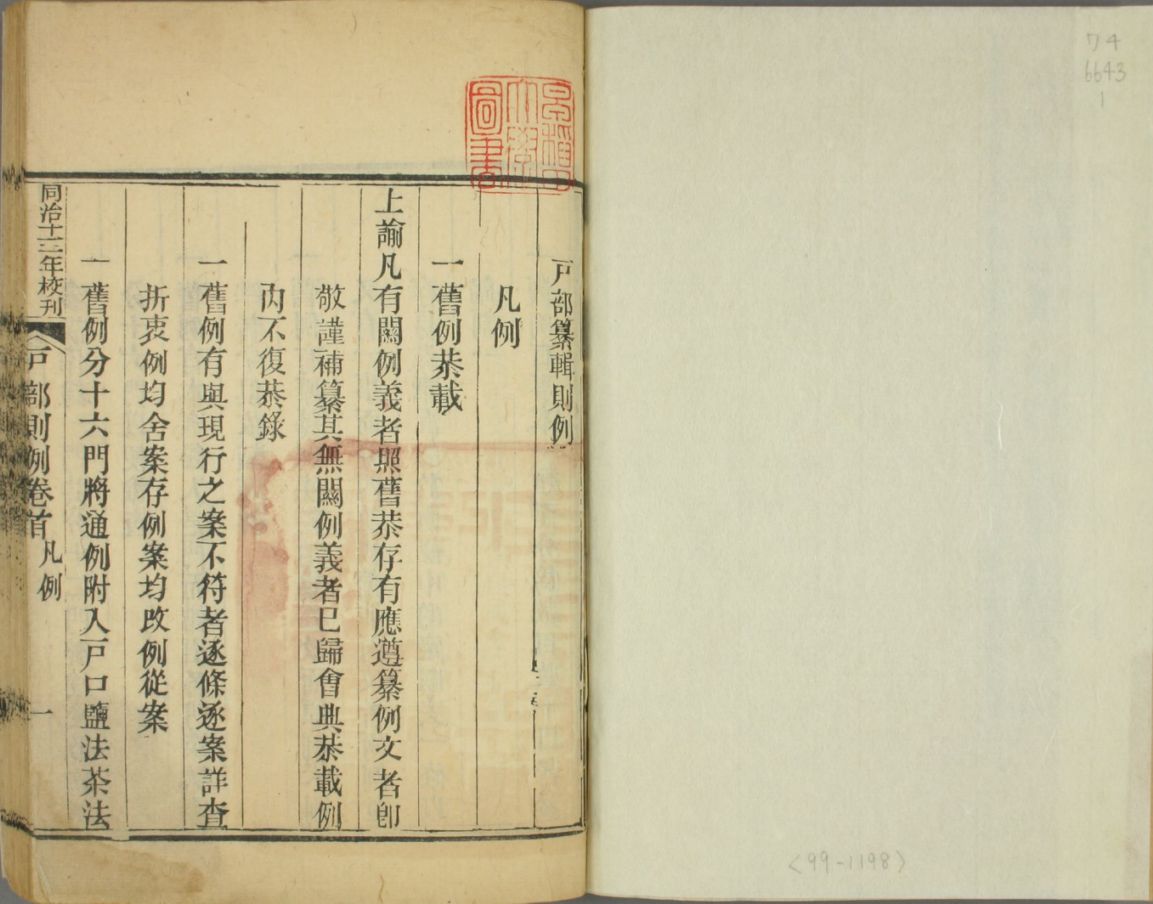 戶部纂輯則例
凡例
一舊例恭載
上諭凡有關例義者照舊恭存有應遵纂例文者卽
敬謹補纂其無關例義者已歸會典恭載例
內不復恭錄
一舊例有與現行之案不符者逐條逐案詳查
折衷例均舍案存例案均改例從案
一舊例分十六門將通例附入戶口鹽法茶法
同治十三年校刊
戶部則例卷首
凡例
一
早稻田大學圖書
74
6643
1
<99-1198>